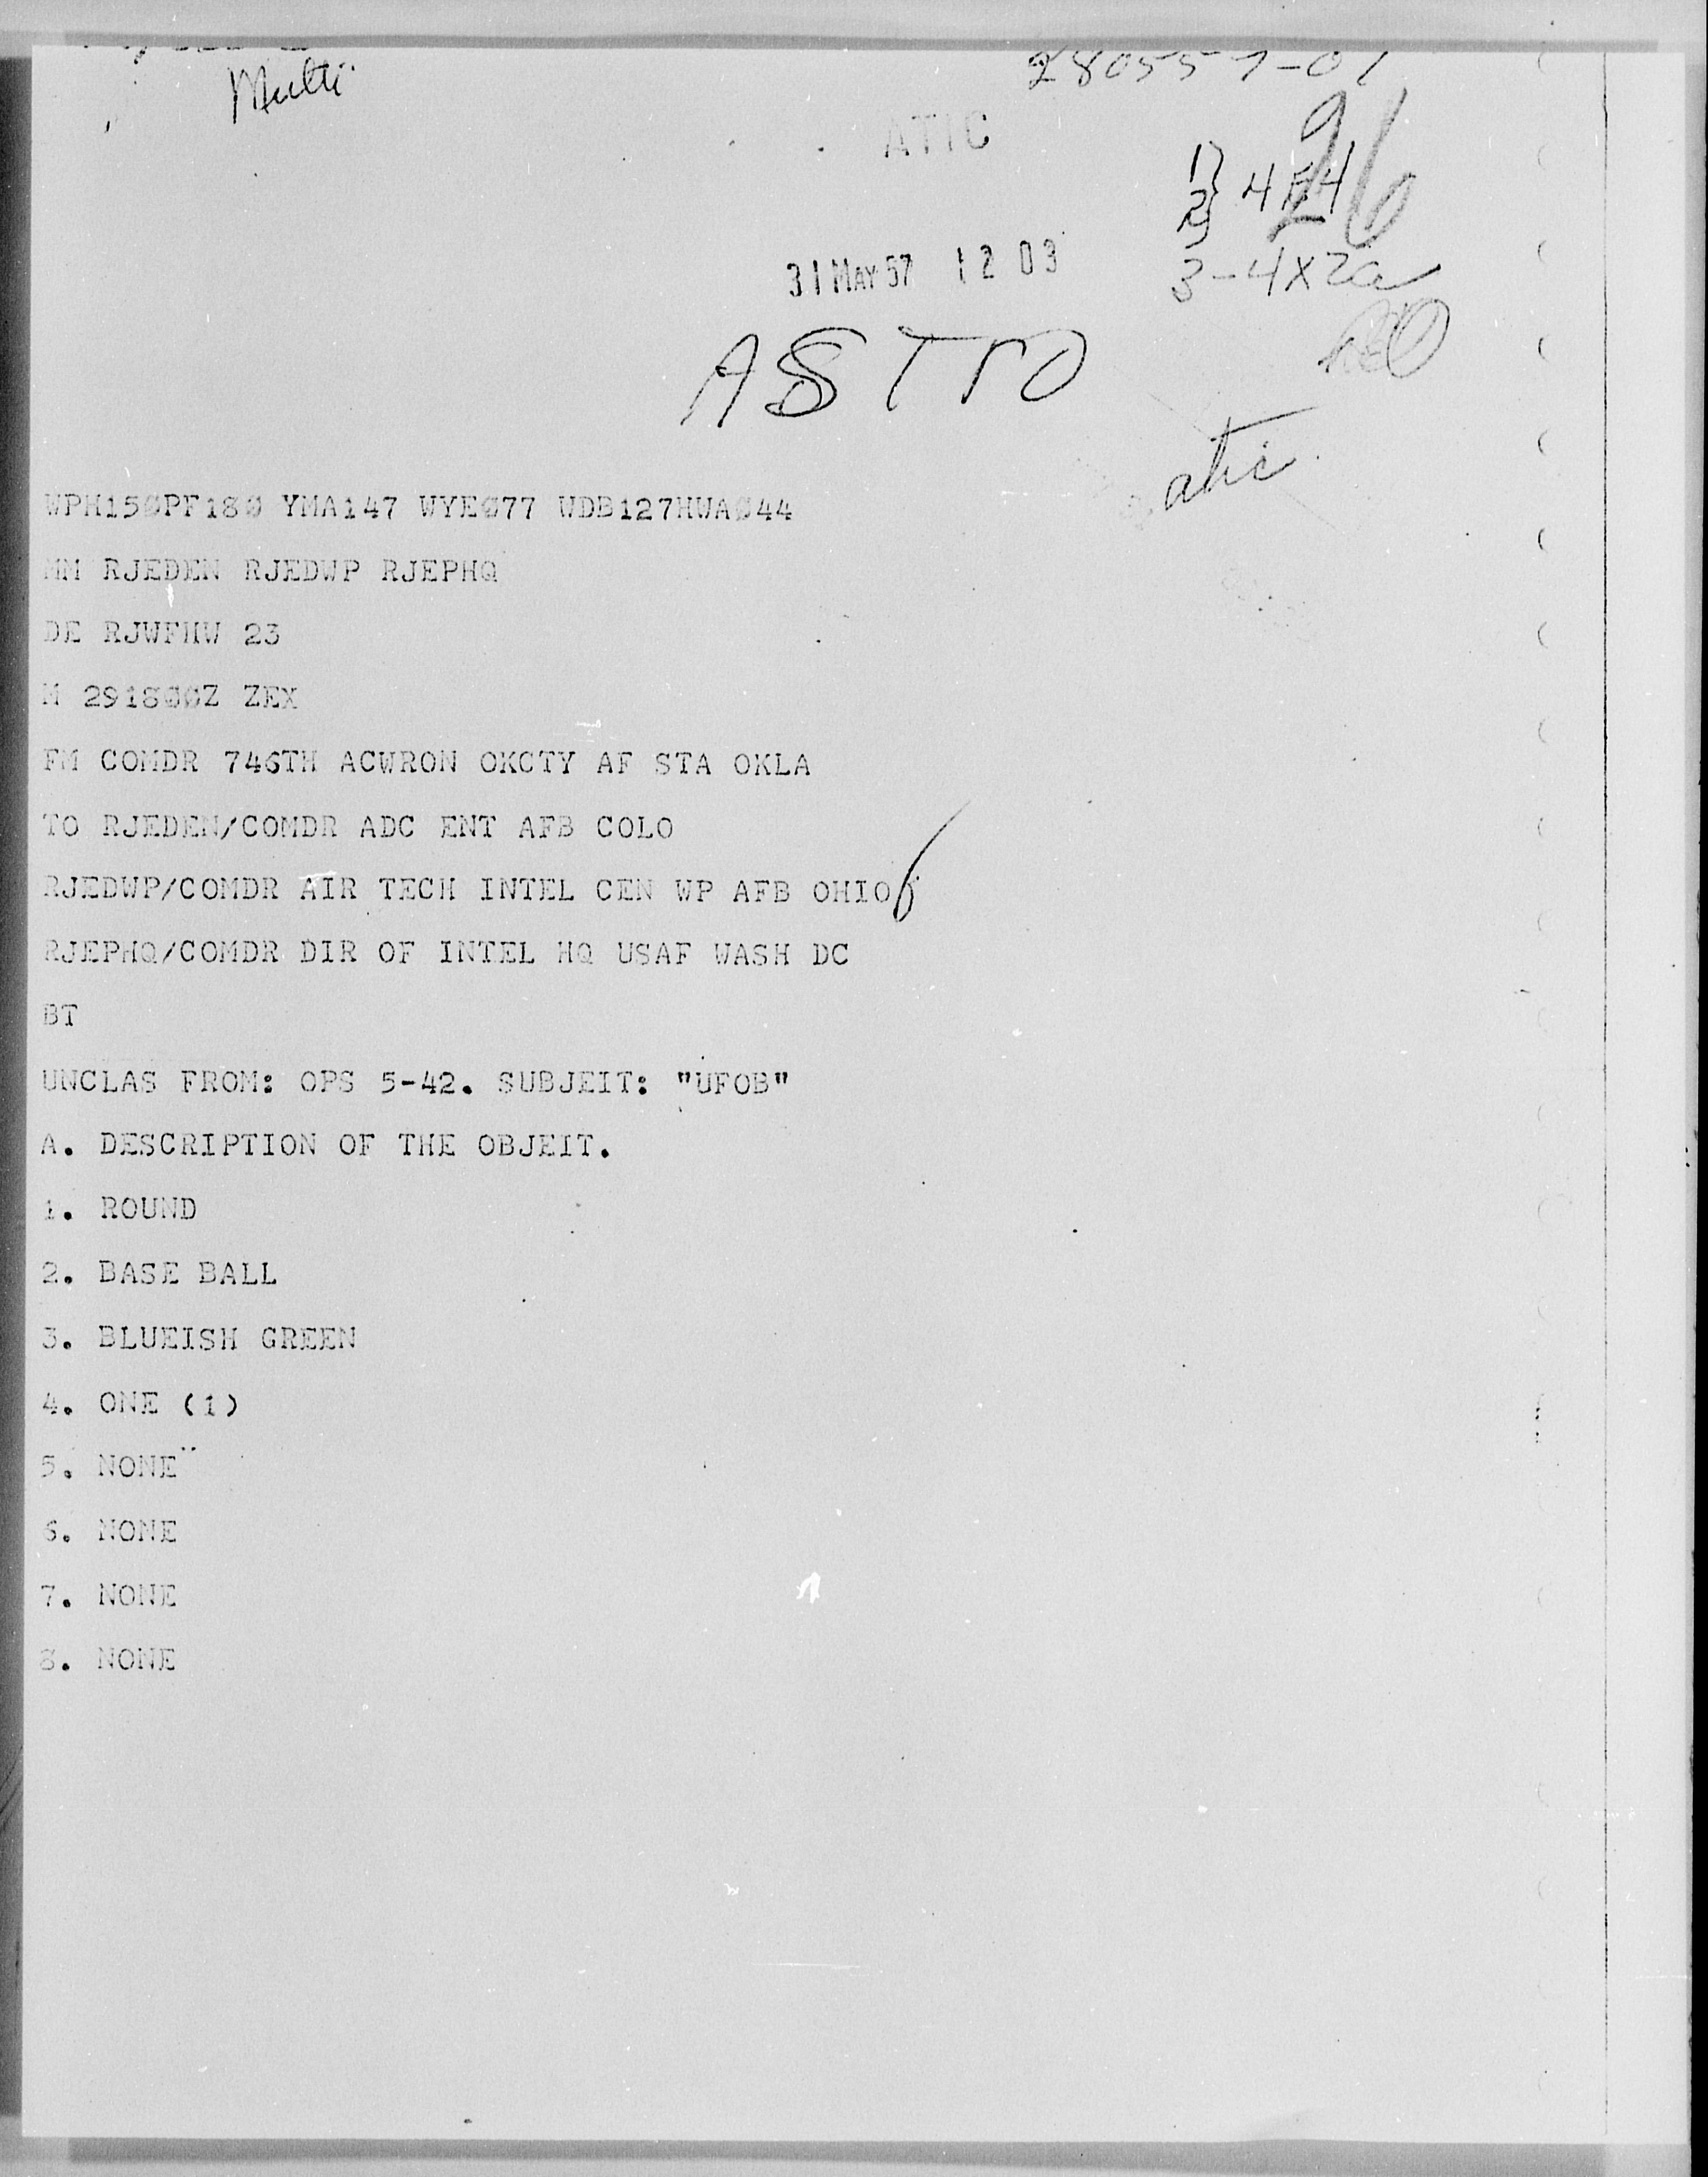 Multi
280557-01
ATIC
26
1} 4E4
2}
31 MAY 57 12 03
3-4X2a
ASTRO
atic
WPH150PF180 YMA147 WYE077 WDB127HWA044
MM RJEDEN RJEDWP RJEPHQ
DE RJWFHW 23
M 291800Z ZEX
FM COMDR 746TH ACWRON OKCTY AF STA OKLA
TO RJEDEN/COMDR ADC ENT AFB COLO
RJEDWP/COMDR AIR TECH INTEL CEN WP AFB OHIO
RJEPHQ/COMDR DIR OF INTEL HQ USAF WASH DC
BT
UNCLAS FROM: OPS 5-42. SUBJEIT: "UFOB"
A. DESCRIPTION OF THE OBJEIT.
1. ROUND
2. BASE BALL
3. BLUEISH GREEN
4. ONE (1)
5. NONE
6. NONE
7. NONE
8. NONE